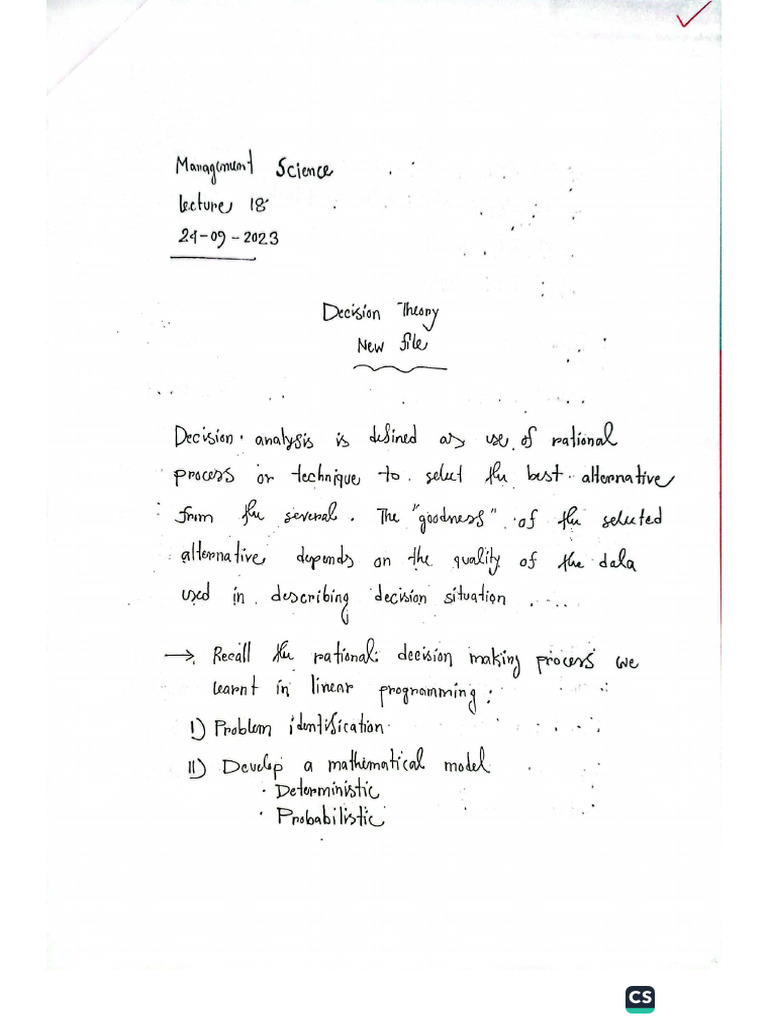 Management Science
Lecture 18
24-09-2023
Decision Theory
New file
Decision analysis is defined as use of rational
process or technique to select the best alternative
from the several. The "goodness" of the selected
alternative depends on the quality of the data
used in describing decision situation
→ Recall the rational decision making process we
learnt in linear programming:
I) Problem identification
II) Develop a mathematical model
· Deterministic
· Probabilistic
CS